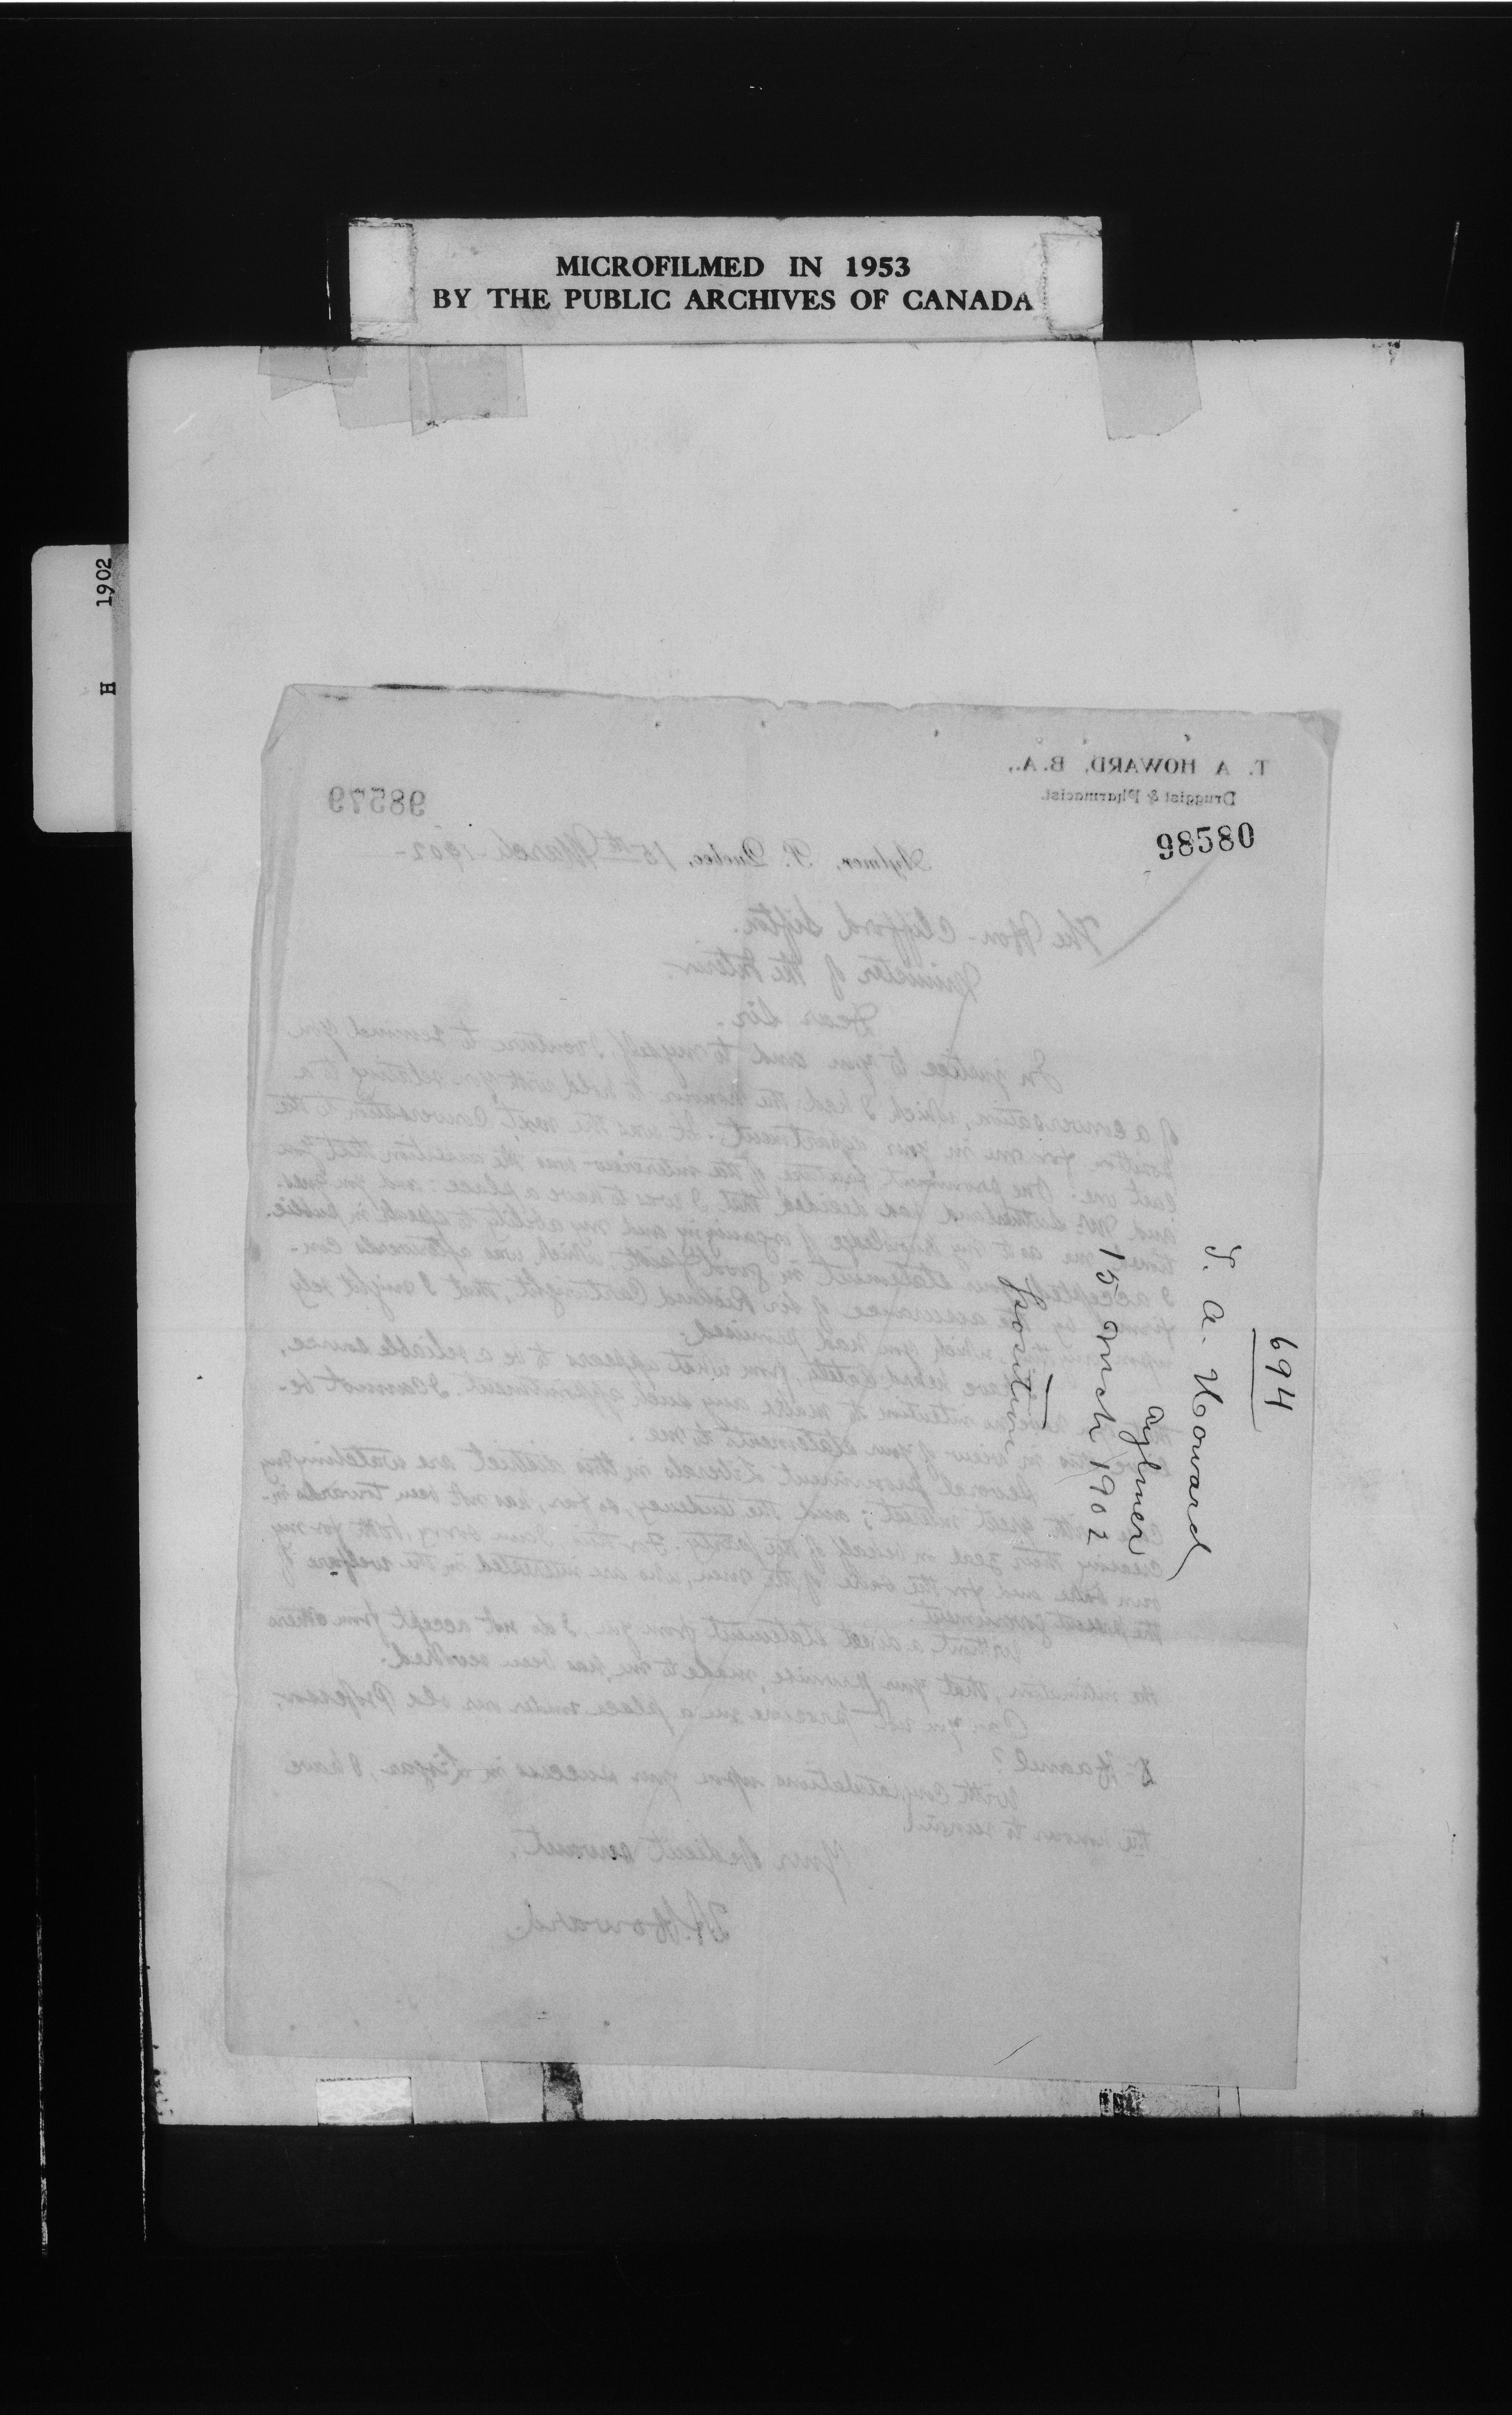 MICROFILMED IN 1953
BY THE PUBLIC ARCHIVES OF CANADA
H 1902
T. A HOWARD, B.A.,
Druggist & Pharmacist.
98579
98580
Aylmer, P. Quebec, 15th March 1902-
The Hon. Clifford Sifton.
Minister of the Interior.
Dear Sir.
In justice to you and to myself I venture to remind you
of a conversation, which I had the honour to hold with you relating to a
position for me in your department. It was the next conversation to the
last one. One prominent feature of the interview was the assertion that you
and Mr Sutherland had decided that I was to have a place: and you ques-
tioned me as to my knowledge of organizing and my ability to speak in public.
I accepted your statement in good faith which was afterwards con-
firmed by the assurance of Sir Richard Cartwright that I might rely
upon which you had promised.
have heard lately, from what appears to be a reliable source,
intention to make any such appointment. I cannot be-
in view of your statements to me.
Several prominent Liberals in this district are watching my
with great interest; and the tendency, so far, has not been towards in-
creasing their zeal in behalf of the party. For this, I am sorry, both for my
own sake and for the sake of the men, who are interested in the welfare of
the present government.
Without a direct statement from you, I do not accept from others
the intimation, that your promise, made to me, has been
Can you not procure me a place under our old Professor,
Dr Haanel?
With congratulations upon your success in Lisgar, I have
the honour to remain
Your obedient servant,
Howard.
694
T. A. Howard
Aylmer
15 Mch 1902
Position